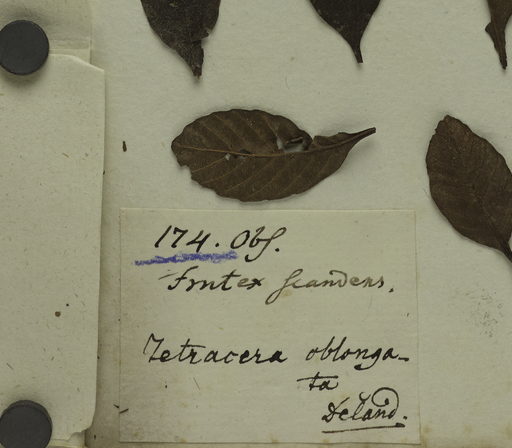 174. Obs.
Frutex scandens.
Tetracera oblonga-
ta
Deland.